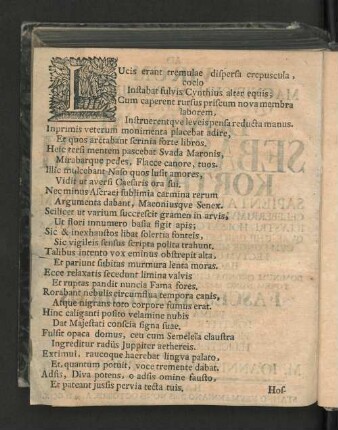 LUcis erant tremulae dispersa crepuscula,
coelo
Instabat fulvis Cynthius alter equis;
Cum caperent rursus priscum nova membra
laborem,
Instruerentqve leves pensa reducta manus.
Inprimis veterum monimenta placebat adire,
Et quos arctabant scrinia forte libros.
Hosce recsi mentem pascebat Svada Maronis,
Mirabarque pedes, Flacce canore, tuos.
Illic mulcebant Naso quos lusit amores,
Vidit ut aversi Caesaris ora sui.
Nec minus Ascraei sublimia carmina rerum
Argumenta dabant, Maoniusqve Senex.
Scilicet ut varium succrescit gramen in arvis,
Ut flori innumero basia figit apis;
Sic & inexhaustos libat solertia fonteis,
Sic vigileis sensus scripta polita trahunt.
Talibus intento vox eminus obstrepit alta,
Et pariunt subitus murmura lenta moras.
Ecce relaxatis secedunt limina valvis
Et ruptas pandit nuncia Fama fores,
Rorabant nebulis circumflua tempora canis,
Asque nigrans toto corpore fumus erat.
Hinc caliganti posito velamine nubis
Dat Majestati conscia signa suae.
Fulsit opaca domus, ceu cum Semeleia claustra
Ingreditur radiis Juppiter aethereis.
Extimui, raucoque haerebat lingva palato,
Et, quantum potuit, voce tremente dabat.
Adsis, Diva potens, o adsis omine fausto,
Et pateant jussis pervia tecta tuis,
Hos-